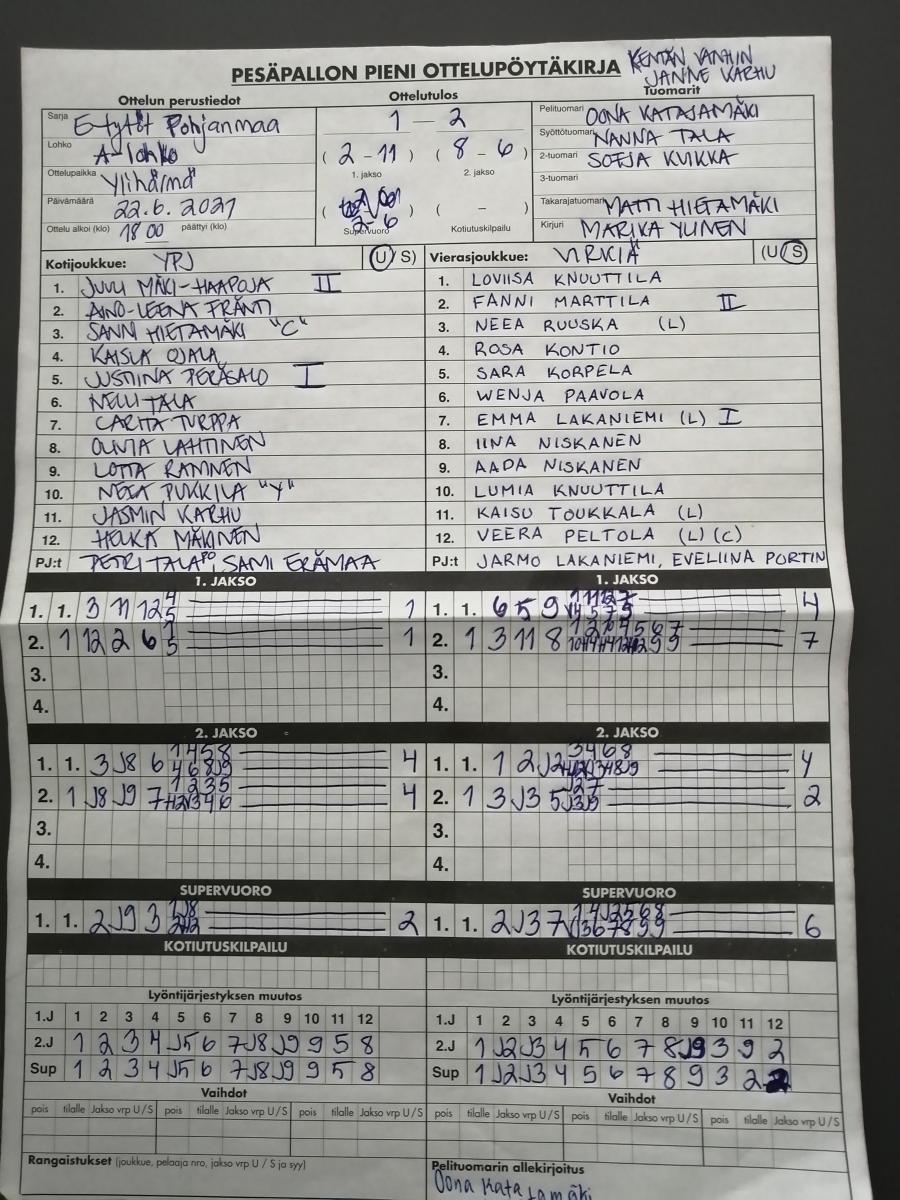 PESÄPALLON PIENI OTTELUPÖYTÄKIRJA KENTÄN VANHIN
JANNE KARHU
Ottelun perustiedot
Sarja E-tytöt Pohjanmaa
Lohko A-lohko
Ottelupaikka Ylihärmä
Päivämäärä 22.6.2021
Ottelu alkoi (klo) 18 00 päättyi (klo)
Ottelutulos
1 — 2
( 2 - 11 ) ( 8 - 6 )
1. jakso 2. jakso
( 2-6 ) ( - )
Supervuoro Kotiutuskilpailu
Tuomarit
Pelituomari OONA KATAJAMÄKI
Syöttötuomari NANNA TALA
2-tuomari SOFJA KUIKKA
3-tuomari
Takarajatuomari MATTI HIETAMÄKI
Kirjuri MARIKA YLINEN
Kotijoukkue: YPJ (U/S)
1. JUULI MÄKI-HAAPOJA II
2. AINO-LEENA FRÄNTI
3. SANNI HIETAMÄKI "C"
4. KAISLA OJALA
5. JUSTIINA PERÄSALO I
6. NELLI TALA
7. CARITA TURPPA
8. OLIVIA LAHTINEN
9. LOTTA RANNEN
10. PUKKILA "Y"
11. JASMIN KARHU
12. HELKA MÄKINEN
PJ:t PETRI TALA, SAMI ERÄMAA
Vierasjoukkue: VIRKIÄ (U/S)
1. LOVIISA KNUUTTILA
2. FANNI MARTTILA II
3. NEEA RUUSKA (L)
4. ROSA KONTIO
5. SARA KORPELA
6. WENJA PAAVOLA
7. EMMA LAKANIEMI (L) I
8. IINA NISKANEN
9. AADA NISKANEN
10. LUMIA KNUUTTILA
11. KAISU TOUKKALA (L)
12. VEERA PELTOLA (L) (C)
PJ:t JARMO LAKANIEMI, EVELIINA PORTIN
1. JAKSO
1. 1. 3 11 12 4 5 1
2. 1 12 2 6 5 1
3.
4.
1. JAKSO
1. 1. 6 5 9 4
2. 1 3 11 8 7
3.
4.
2. JAKSO
1. 1. 3 J8 6 1 4 5 8 4
4 6 8 J9
2. 1 J8 J9 7 1 2 3 5 4
3.
4.
2. JAKSO
1. 1. 1 2 J2 3 4 6 8 4
2. 1 3 J3 5 J2 7 2
3.
4.
SUPERVUORO
1. 1. 2 J9 3 1 J8 2
SUPERVUORO
1. 1. 2 J3 7 6
KOTIUTUSKILPAILU
KOTIUTUSKILPAILU
Lyöntijärjestyksen muutos
1.J 1 2 3 4 5 6 7 8 9 10 11 12
2.J 1 2 3 4 J5 6 7 J8 J9 9 5 8
Sup 1 2 3 4 J5 6 7 J8 J9 9 5 8
Lyöntijärjestyksen muutos
1.J 1 2 3 4 5 6 7 8 9 10 11 12
2.J 1 J2 J3 4 5 6 7 8 J9 3 9 2
Sup 1 J2 J3 4 5 6 7 8 9 3 2
Vaihdot
pois tilalle Jakso vrp U/S pois tilalle Jakso vrp U/S pois tilalle Jakso vrp U/S
Vaihdot
pois tilalle Jakso vrp U/S pois tilalle Jakso vrp U/S pois tilalle Jakso vrp U/S
Rangaistukset (joukkue, pelaaja nro, jakso vrp U / S ja syy)
Pelituomarin allekirjoitus
Oona Katajamäki